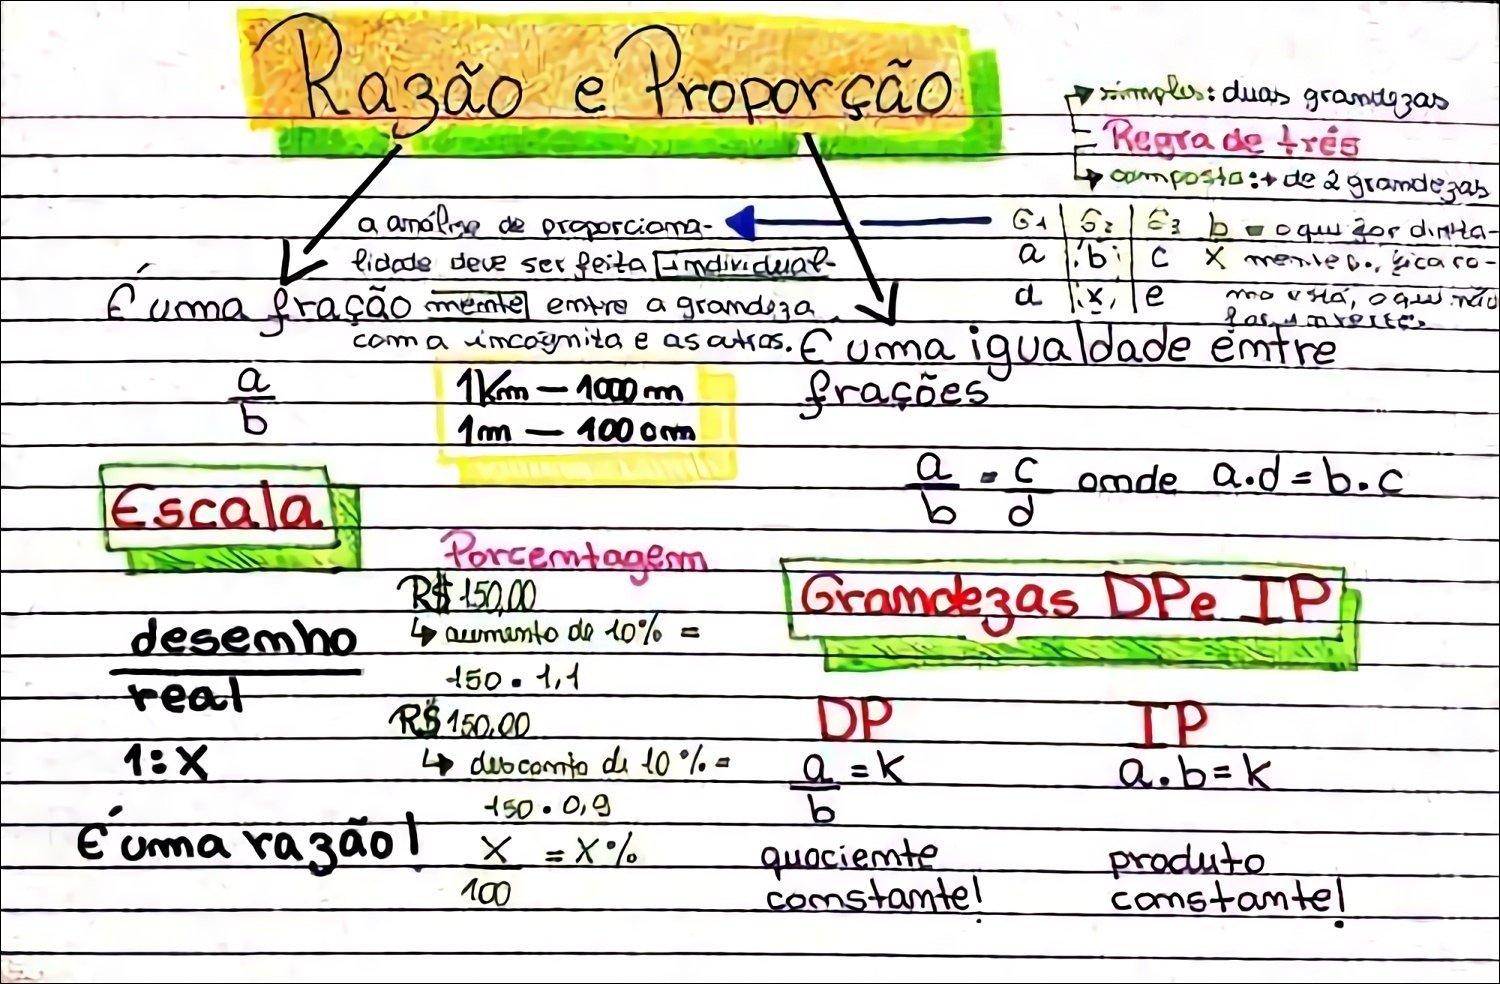 Razão e Proporção
simples: duas grandezas
Regra de três
composta: + de 2 grandezas
a análise de proporciona-
lidade deve ser feita individual-
mente entre a grandeza
com a incógnita e as outras.
G1 G2 G3
a b c
d x e
b = o que for direta-
x mente p., fica co-
mo está, o que não
for, inverte.
É uma fração
a
b
É uma igualdade entre
frações
a = c onde a.d = b.c
b d
1Km — 1000 m
1m — 100 cm
Escala
desenho
real
1:X
É uma razão!
Porcentagem
R$ 150,00
↳ aumento de 10% =
150 . 1,1
R$ 150,00
↳ desconto de 10% =
150 . 0,9
X = X%
100
Grandezas DP e IP
DP
a = K
b
quociente
constante!
IP
a . b = K
produto
constante!